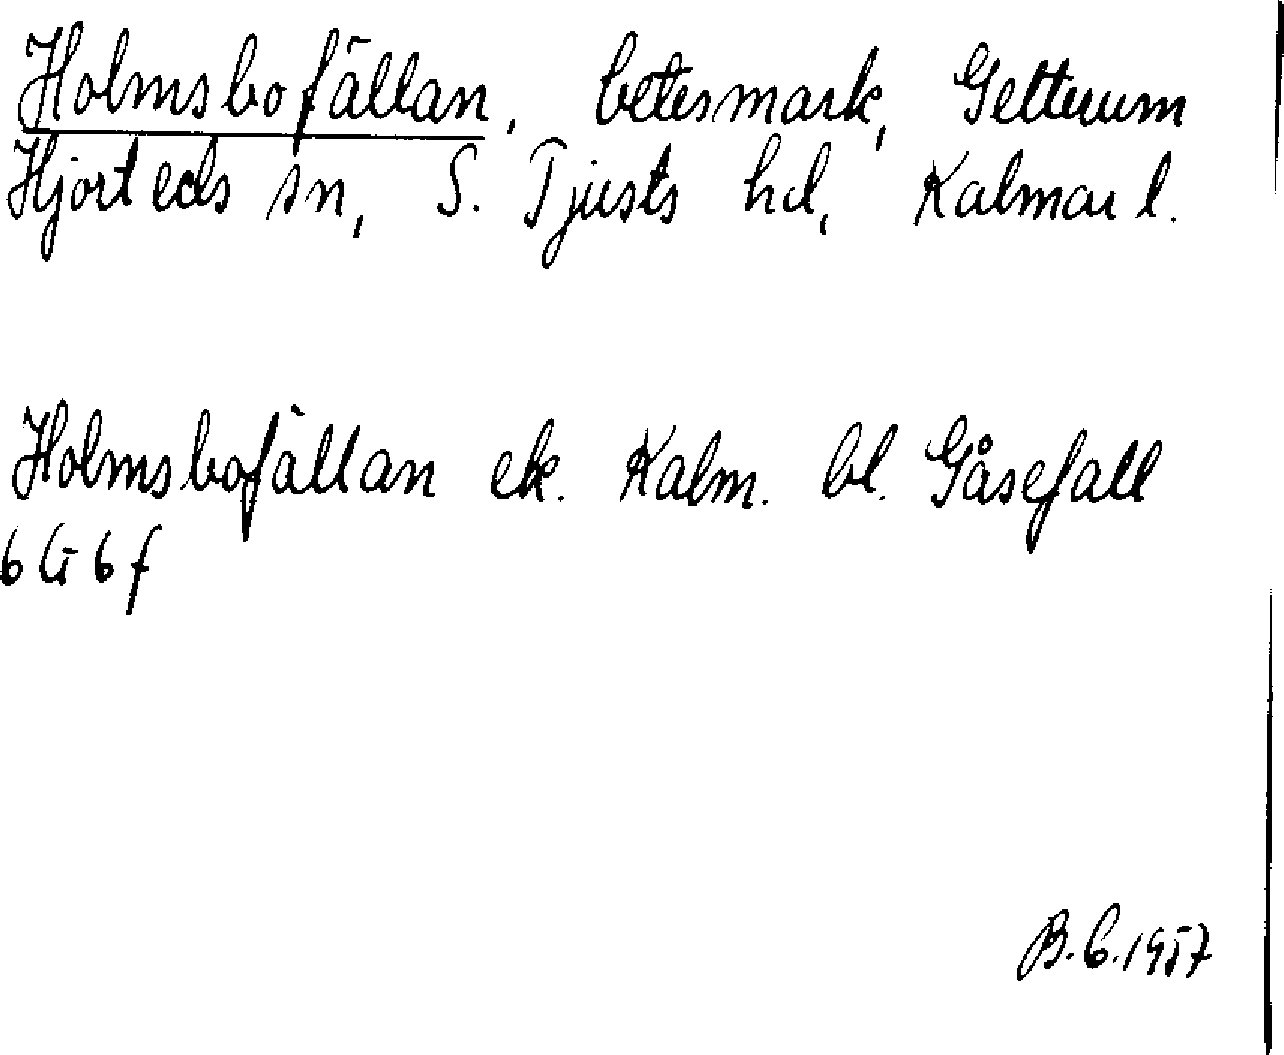 Holmsbofällan, betesmark, Getterum
Hjorteds sn, S. Tjusts hd, Kalmar l.
Holmsbofällan ek. Kalm. bl. Gåsefall
6 G 6 f
B.C. 1957